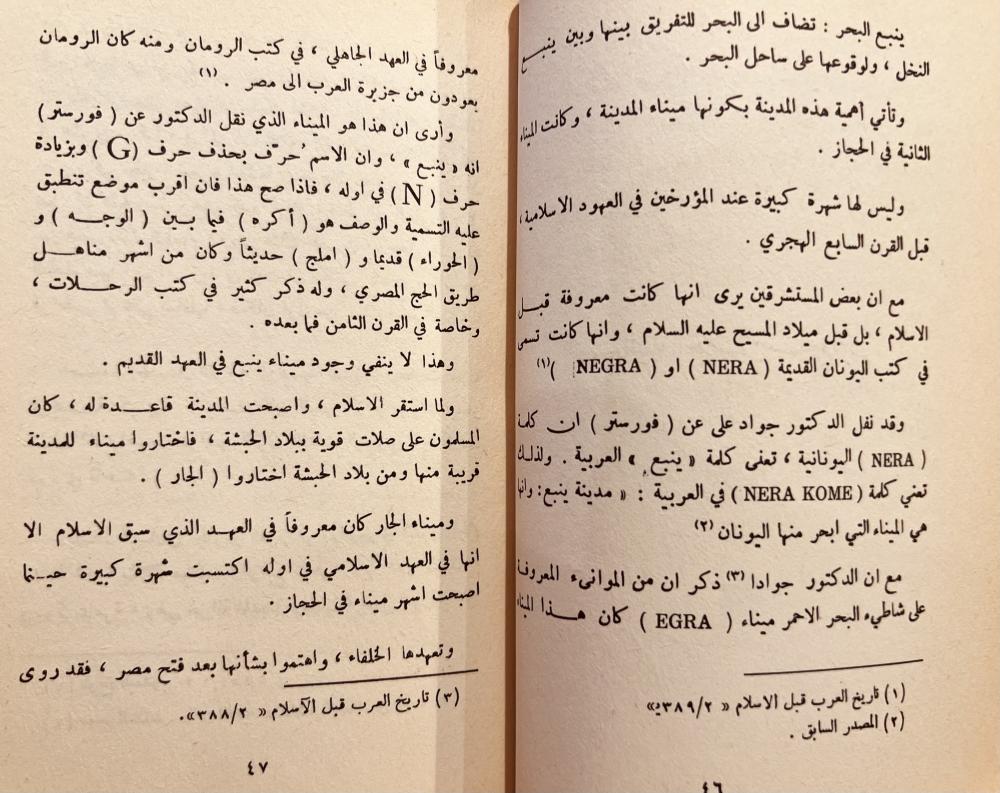 ينبع البحر : تضاف الى البحر للتفريق بينها وبين ينبع
النخل ، ولوقوعها على ساحل البحر .
وتأتي أهمية هذه المدينة بكونها ميناء المدينة ، وكانت الميناء
الثانية في الحجاز .
وليس لها شهرة كبيرة عند المؤرخين في العهود الاسلامية ،
قبل القرن السابع الهجري .
مع ان بعض المستشرقين يرى انها كانت معروفة قبل
الاسلام ، بل قبل ميلاد المسيح عليه السلام ، وانها كانت تسمى
في كتب اليونان القديمة ( NERA ) او ( NEGRA )(١)
وقد نفل الدكتور جواد على عن ( فورستر ) ان كلمة
( NERA ) اليونانية ، تعنى كلمة « ينبع » العربية . ولذلك
تعني كلمة ( NERA KOME ) في العربية : « مدينة ينبع : وانها
هي الميناء التي ابحر منها اليونان (٢)
مع ان الدكتور جوادا (٣) ذكر ان من الموانىء المعروفة
على شاطيء البحر الاحمر ميناء ( EGRA ) كان هذا الميناء
(١) تاريخ العرب قبل الاسلام « ٣٨٩/٢ »
(٢) المصدر السابق .
٤٦
معروفاً في العهد الجاهلي ، في كتب الرومان ومنه كان الرومان
يعودون من جزيرة العرب الى مصر . (١)
وأرى ان هذا هو الميناء الذي نقل الدكتور عن ( فورستر )
انه « ينبع » ، وان الاسم حرّف بحذف حرف ( G ) وبزيادة
حرف ( N ) في اوله ، فاذا صح هذا فان اقرب موضع تنطبق
عليه التسمية والوصف هو ( أكره ) فيما بين ( الوجه ) و
( الحوراء ) قديما و ( املج ) حديثاً وكان من اشهر مناهل
طريق الحج المصري ، وله ذكر كثير في كتب الرحلات ،
وخاصة في القرن الثامن فما بعده .
وهذا لا ينفي وجود ميناء ينبع في العهد القديم .
ولما استقر الاسلام ، واصبحت المدينة قاعدة له ، كان
المسلمون على صلات قوية ببلاد الحبشة ، فاختاروا ميناء للمدينة
قريبة منها ومن بلاد الحبشة اختاروا ( الجار ) .
وميناء الجار كان معروفاً في العهد الذي سبق الاسلام الا
انها في العهد الاسلامي في اوله اكتسبت شهرة كبيرة حينما
اصبحت اشهر ميناء في الحجاز .
وتعهدها الخلفاء ، واهتموا بشأنها بعد فتح مصر ، فقد روى
(٣) تاريخ العرب قبل الآسلام « ٣٨٨/٢ ».
٤٧